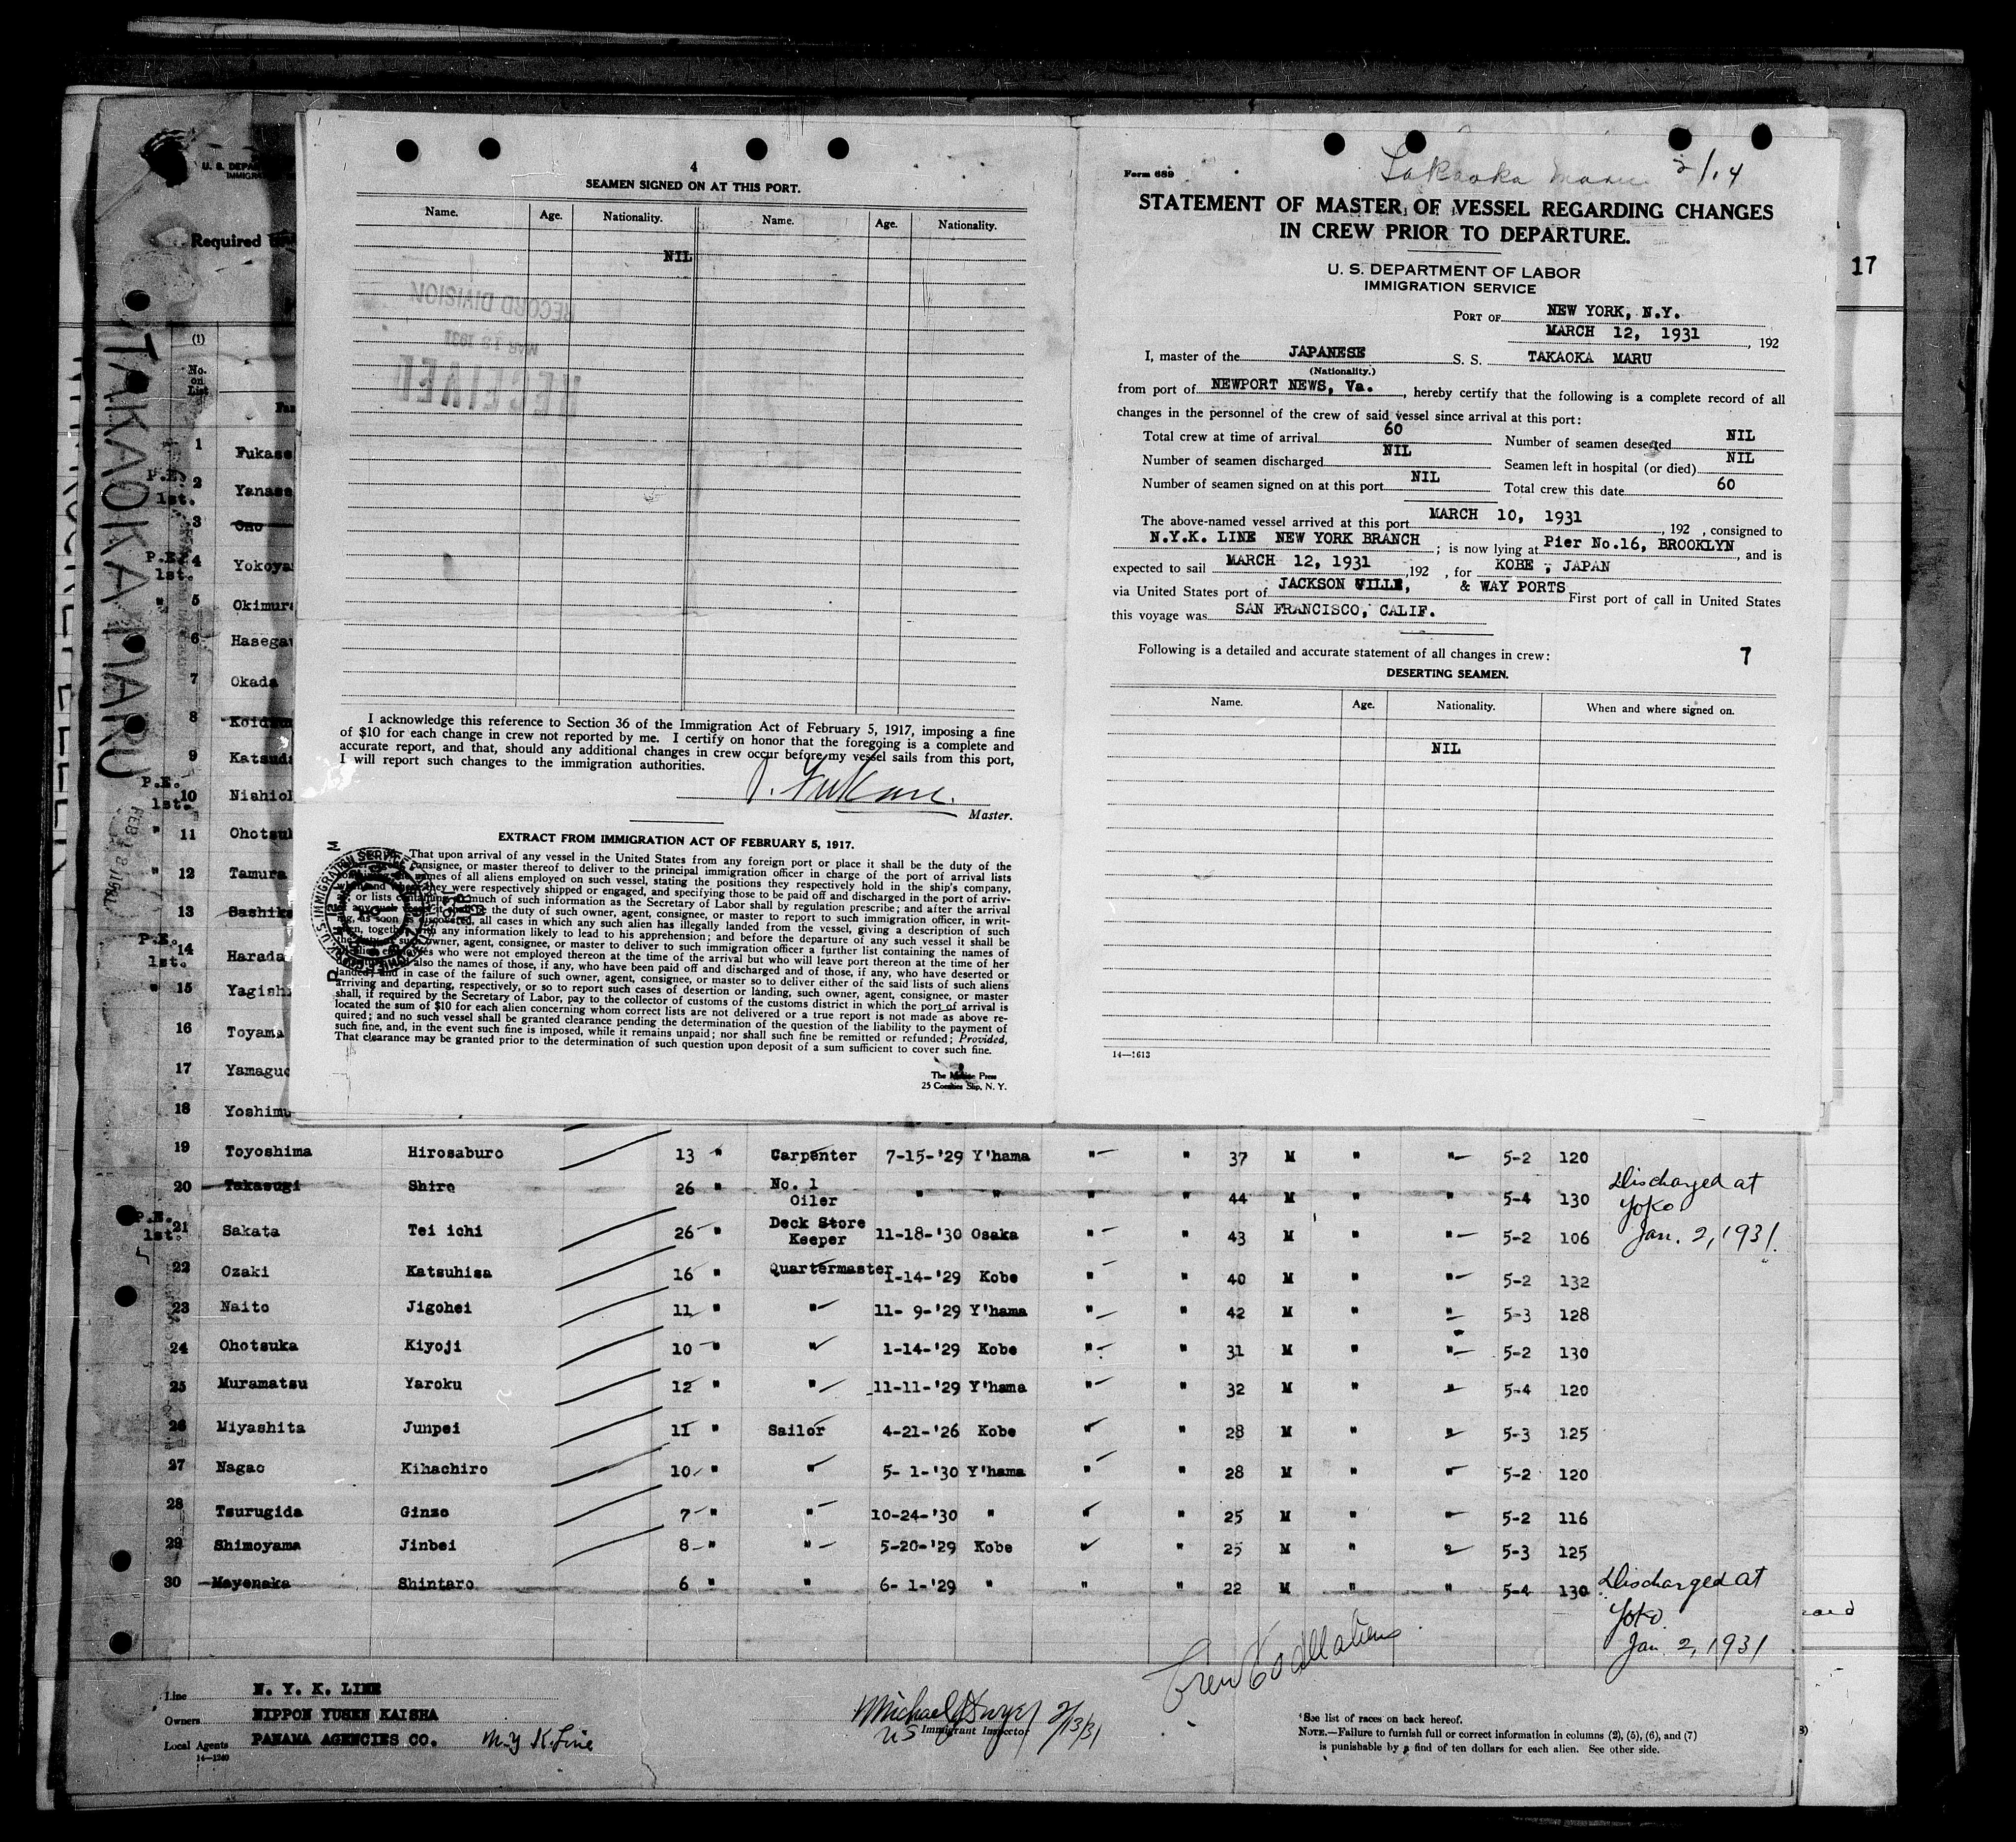 4
SEAMEN SIGNED ON AT THIS PORT.
Name. Age. Nationality. Name. Age. Nationality.
NIL
RECORD DIVISION
MAR 13 1931
RECEIVED
I acknowledge this reference to Section 36 of the Immigration Act of February 5, 1917, imposing a fine
of $10 for each change in crew not reported by me. I certify on honor that the foregoing is a complete and
accurate report, and that, should any additional changes in crew occur before my vessel sails from this port,
I will report such changes to the immigration authorities.
Master.
EXTRACT FROM IMMIGRATION ACT OF FEBRUARY 5, 1917.
That upon arrival of any vessel in the United States from any foreign port or place it shall be the duty of the
consignee, or master thereof to deliver to the principal immigration officer in charge of the port of arrival lists
names of all aliens employed on such vessel, stating the positions they respectively hold in the ship's company,
they were respectively shipped or engaged, and specifying those to be paid off and discharged in the port of arriv-
or lists containing much of such information as the Secretary of Labor shall by regulation prescribe; and after the arrival
the duty of such owner, agent, consignee, or master to report to such immigration officer, in writ-
ing, as soon as discovered, all cases in which any such alien has illegally landed from the vessel, giving a description of such
alien, together with any information likely to lead to his apprehension; and before the departure of any such vessel it shall be
the duty of such owner, agent, consignee, or master to deliver to such immigration officer a further list containing the names of
who were not employed thereon at the time of the arrival but who will leave port thereon at the time of her
also the names of those, if any, who have been paid off and discharged and of those, if any, who have deserted or
landed; and in case of the failure of such owner, agent, consignee, or master so to deliver either of the said lists of such aliens
arriving and departing, respectively, or so to report such cases of desertion or landing, such owner, agent, consignee, or master
shall, if required by the Secretary of Labor, pay to the collector of customs of the customs district in which the port of arrival is
located the sum of $10 for each alien concerning whom correct lists are not delivered or a true report is not made as above re-
quired; and no such vessel shall be granted clearance pending the determination of the question of the liability to the payment of
such fine, and, in the event such fine is imposed, while it remains unpaid; nor shall such fine be remitted or refunded; Provided,
That clearance may be granted prior to the determination of such question upon deposit of a sum sufficient to cover such fine.
The Press
25 Coenties Slip, N. Y.
Form 689
Takaoka Maru 2/14
STATEMENT OF MASTER OF VESSEL REGARDING CHANGES
IN CREW PRIOR TO DEPARTURE.
U. S. DEPARTMENT OF LABOR
IMMIGRATION SERVICE
PORT OF NEW YORK, N.Y.
MARCH 12, 1931, 192
I, master of the JAPANESE S. S. TAKAOKA MARU
(Nationality.)
from port of NEWPORT NEWS, Va., hereby certify that the following is a complete record of all
changes in the personnel of the crew of said vessel since arrival at this port:
Total crew at time of arrival 60 Number of seamen deserted NIL
Number of seamen discharged NIL Seamen left in hospital (or died) NIL
Number of seamen signed on at this port NIL Total crew this date 60
The above-named vessel arrived at this port MARCH 10, 1931, 192 , consigned to
N.Y.K. LINE NEW YORK BRANCH ; is now lying at Pier No.16, BROOKLYN, and is
expected to sail MARCH 12, 1931, 192 , for KOBE, JAPAN
via United States port of JACKSON VILLE, & WAY PORTS First port of call in United States
this voyage was SAN FRANCISCO, CALIF.
Following is a detailed and accurate statement of all changes in crew: 7
DESERTING SEAMEN.
Name. Age. Nationality. When and where signed on.
NIL
14—1613
17
U. S. DEPA
IMMIGRA
Required
TAKAOKA MARU
(1)
No. on List
1 Fukase
P.E. 1st. 2 Yanase
3 Ono
P.E. 1st. 4 Yokoya
" 5 Okimura
6 Hasega
7 Okada
8 Koidzu
9 Katsuda
P.E. 1st. 10 Nishio
" 11 Ohotsu
" 12 Tamura
13 Sashik
P.E. 1st. 14 Harada
" 15 Yagish
16 Toyama
17 Yamaguc
18 Yoshimu
19 Toyoshima Hirosaburo 13 " Carpenter 7-15-'29 Y'hama " " 37 M " " 5-2 120
20 Takasugi Shiro 26 " No. 1 Oiler " " " " 44 M " " 5-4 130 Discharged at Yoko Jan. 2, 1931.
P.E. 1st. 21 Sakata Tei ichi 26 " Deck Store Keeper 11-18-'30 Osaka " " 43 M " " 5-2 106
22 Ozaki Katsuhisa 16 " Quartermaster 1-14-'29 Kobe " " 40 M " " 5-2 132
23 Naito Jigohei 11 " " 11- 9-'29 Y'hama " " 42 M " " 5-3 128
24 Ohotsuka Kiyoji 10 " " 1-14-'29 Kobe " " 31 M " " 5-2 130
25 Muramatsu Yaroku 12 " " 11-11-'29 Y'hama " " 32 M " " 5-4 120
26 Miyashita Junpei 11 " Sailor 4-21-'26 Kobe " " 28 M " " 5-3 125
27 Nagao Kihachiro 10 " " 5- 1-'30 Y'hama " " 28 M " " 5-2 120
28 Tsurugida Ginzo 7 " " 10-24-'30 " " " 25 M " " 5-2 116
29 Shimoyama Jinbei 8 " " 5-20-'29 Kobe " " 25 M " " 5-3 125
30 Mayenaka Shintaro 6 " " 6- 1-'29 " " " 22 M " " 5-4 130 Discharged at Yoko. Jan 2, 1931
Crew 60 All aliens
Line N. Y. K. LINE
Owners NIPPON YUSEN KAISHA
Local Agents PANAMA AGENCIES CO. N.Y.K. Line
14—1240
Michael Dwyer 2/13/31
US Immigrant Inspector
¹See list of races on back hereof.
NOTE.—Failure to furnish full or correct information in columns (2), (5), (6), and (7)
is punishable by a find of ten dollars for each alien. See other side.